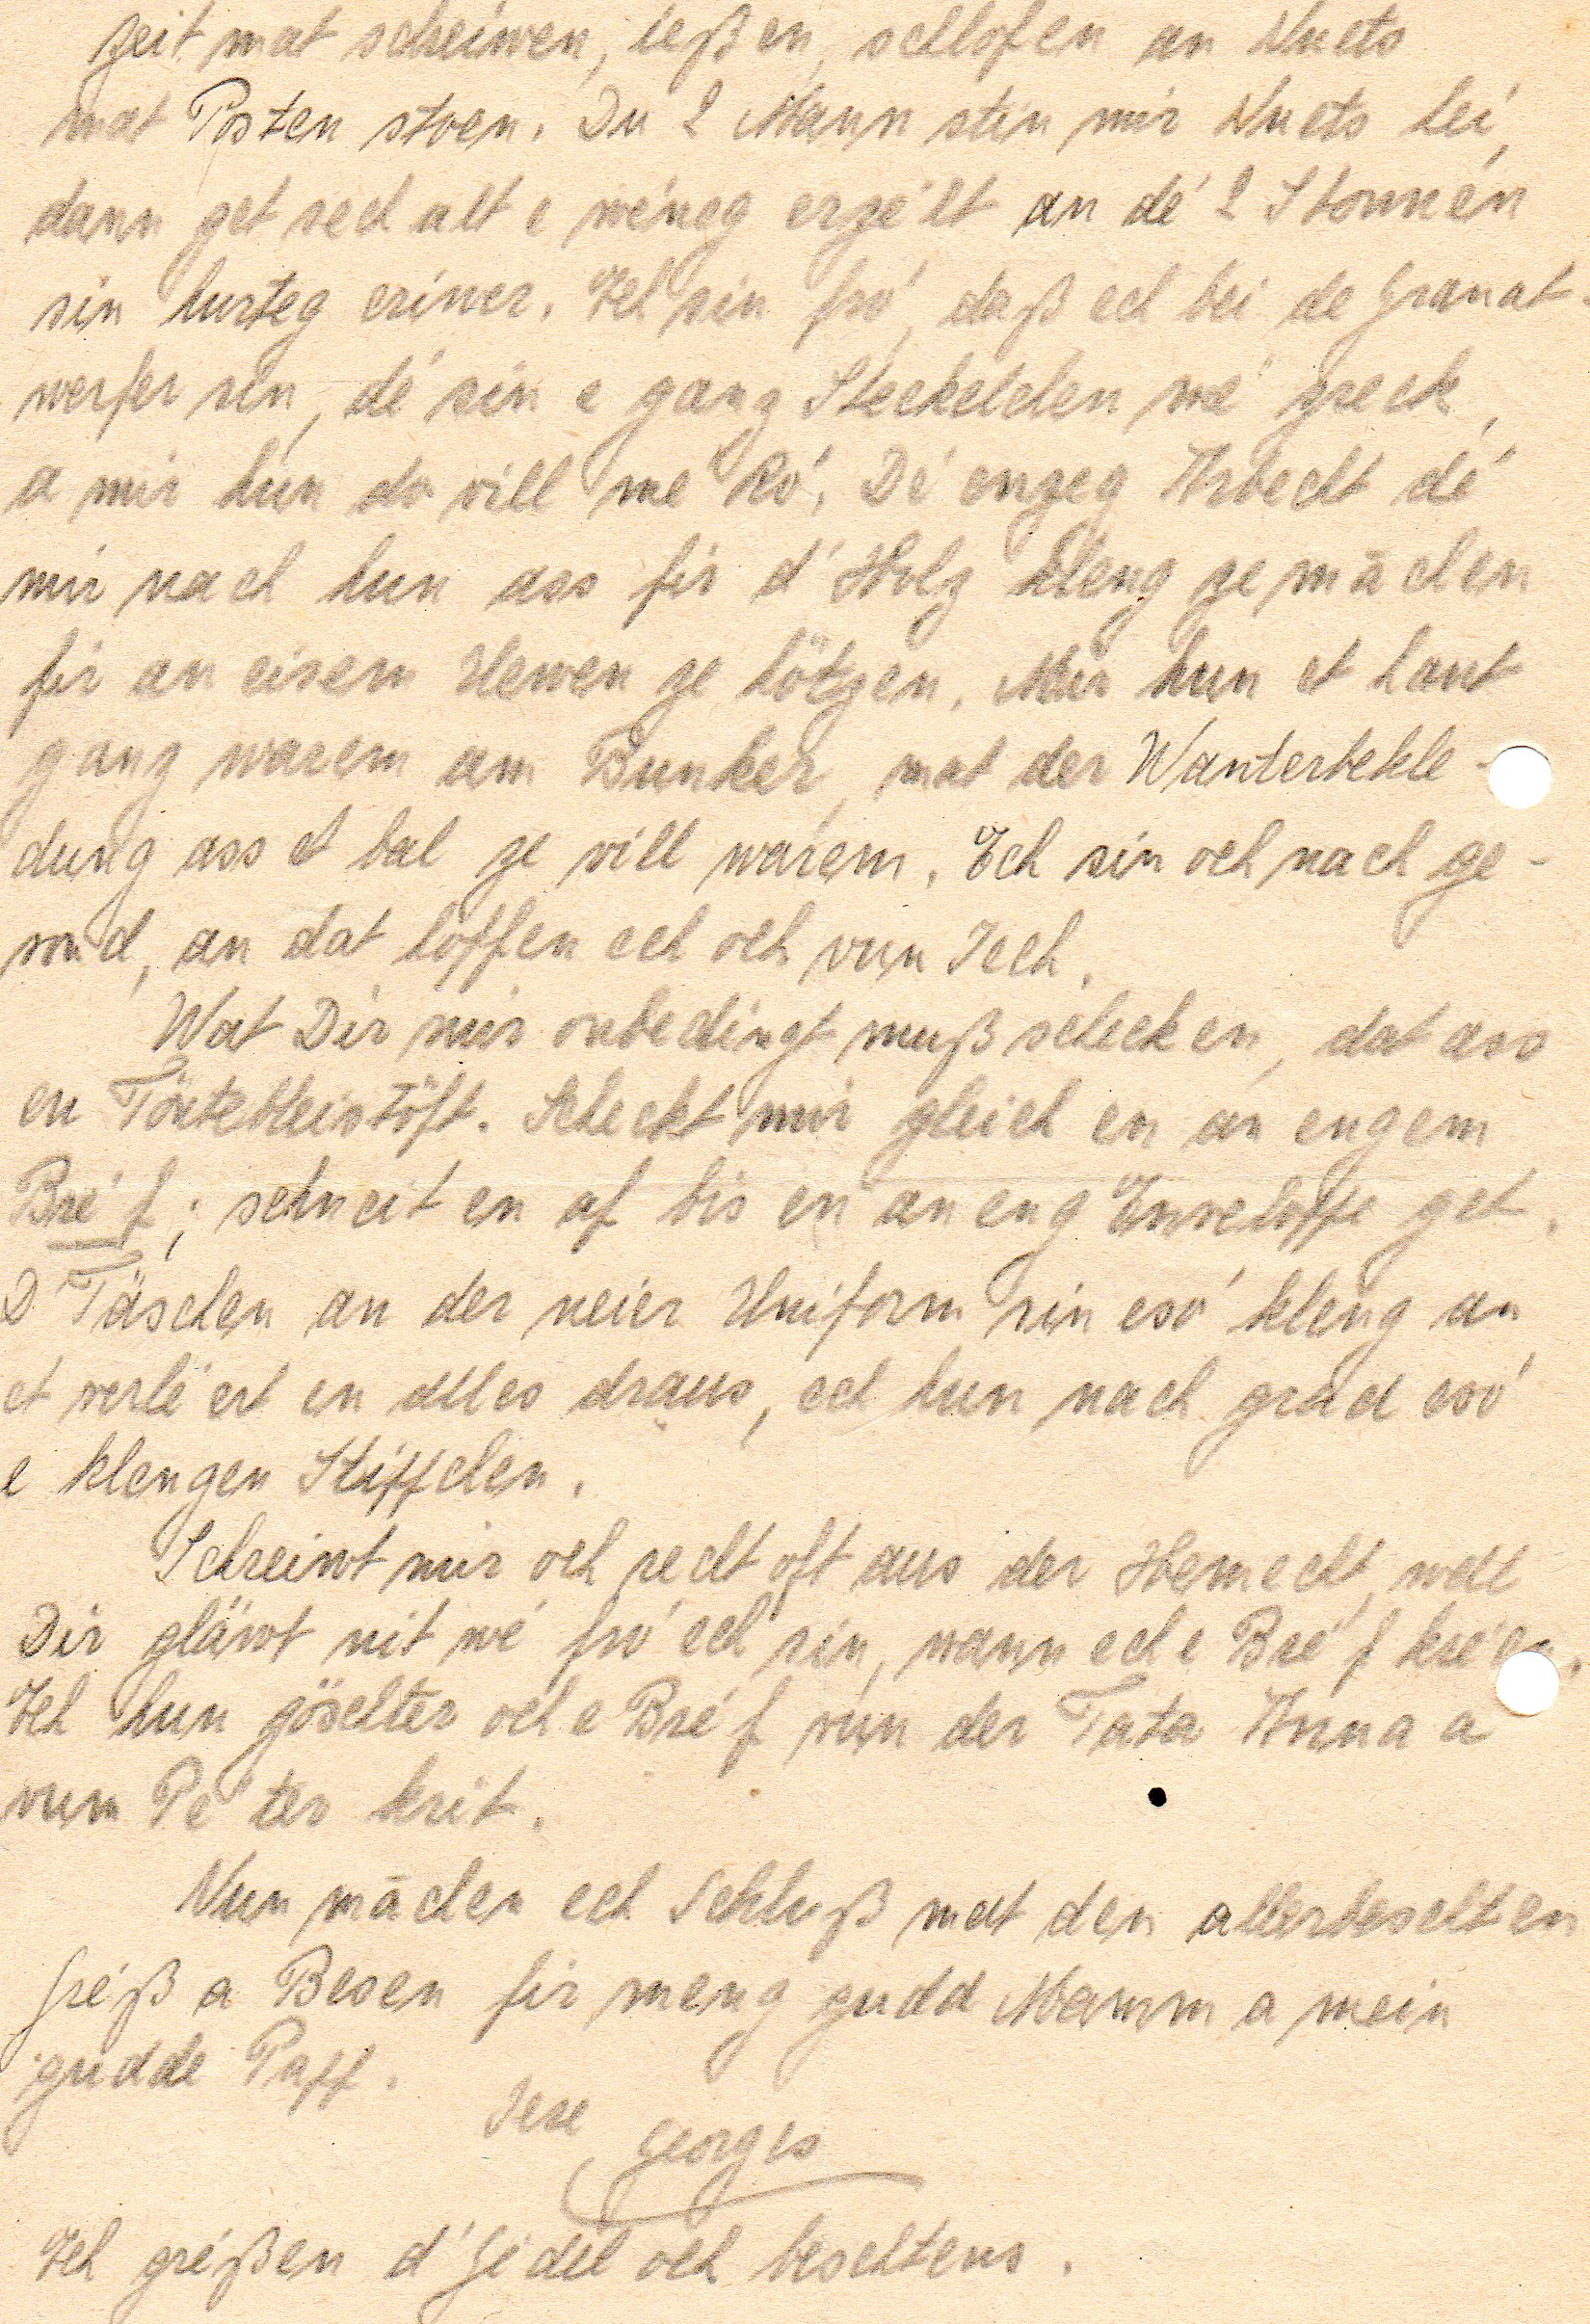 zeit mat schreiwen, ießen, schlofen an Nuets
mat Posten stoen. Zu 2 Mann stin mir Nuets hei,
dann get sech alt e wéneg erzéhlt an dé 2 Stonnen
sin hurteg eriwer. Ech sin fró, daß ech bei de Granat-
werfer sin, dé sin e ganz Steckelchen mé zreck,
a mir hun do vill mé Ró. Dé enzeg Arbecht dé
mir nach hun ass fir d'Holz kleng ze mächen
fir an eisem Uewen ze hötzen. Mir hun et haut
ganz warem am Bunker, mat der Wanterbekle-
dung ass et bal ze vill warem. Ech sin och nach ge-
sond, an dat hoffen ech och vun Iech.
Wat Dir mir onbedingt muß schecken, dat ass
en Töntebleistöft. Scheckt mir gleich en an engem
Bréf; schneit en of bis en an eng Enveloppe get.
D'Täschen an der neier Uniform sin esó kleng an
et verléert en alles draus, ech hun nach grad esó
e klengen Stiffchen.
Schreiwt mir och recht oft aus der Hemecht, well
Dir gläwt nit wé fró ech sin, wann ech e Bréf kréen.
Ech hun göschter och e Bréf vun der Tata Anna a
vum Péter krit.
Nun mächen ech Schluß mat den allerbeschten
Gréß a Besen fir meng gudd Mamm a mein
gudde Papp.
Iere Georges
Ech gréßen d'Gidel och beschtens.